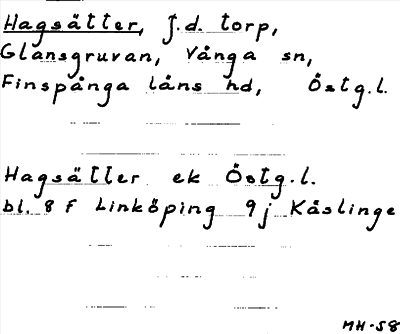 Hagsätter, f.d. torp,
Glansgruvan, Vånga sn,
Finspånga läns hd, Östg.l.
Hagsätter ek Östg.l.
bl. 8 F Linköping 9j Kåslinge
MH-58